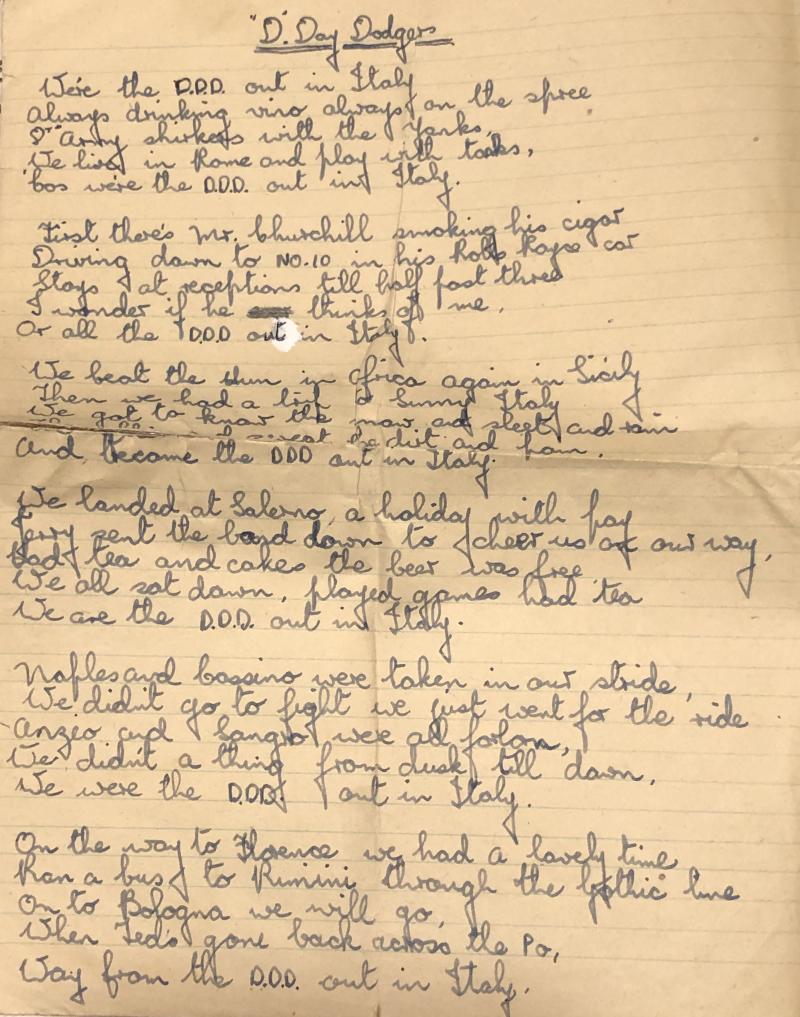 "D" Day Dodgers
We're the D.D.D. out in Italy
Always drinking vino always on the spree
8th Army shirkers with the Yanks,
We live in Rome and play with tanks,
Cos we're the D.D.D. out in Italy.
First there's Mr. Churchill smoking his cigar
Driving down to NO.10 in his Rolls Royce car
Stays at receptions till half past three
I wonder if he thinks of me,
Or all the D.D.D out in Italy.
We beat the Hun in Africa again in Sicily
Then we had a in Sunny Italy
We got to know the snow and sleet and rain
sweat the dirt and pain.
And became the DDD out in Italy.
We landed at Salerno, a holiday with pay
Jerry sent the band down to cheer us on our way,
Had tea and cakes the beer was free
We all sat down, played games had tea
We are the D.D.D. out in Italy.
Naples and Cassino were taken in our stride,
We didn't go to fight we just went for the ride
Anzio and Sangro were all forlorn,
We didn't a thing from dusk till dawn,
We were the D.D.D. out in Italy.
On the way to Florence we had a lovely time
Ran a bus to Rimini through the Gothic line
On to Bologna we will go,
When Ted's gone back across the Po,
Way from the D.D.D. out in Italy.